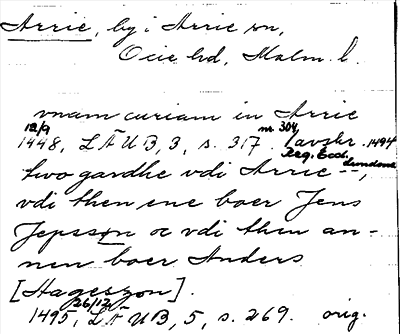 Arrie, by i Arrie sn,
Oxie hd, Malm. l.
vnam curiam in Arrie
12/9 1448, LÄUB, 3, s. 317 nr. 304, (avskr. 1494
Reg. Eccl. Lundens.
two gardhe vdi Arrie --,
vdi then ene boer Jens
Jepsszøn oc vdi then an-
nen boer Anders
[Hagesszon].
26/12 1495, LÄUB, 5, s. 269. orig.